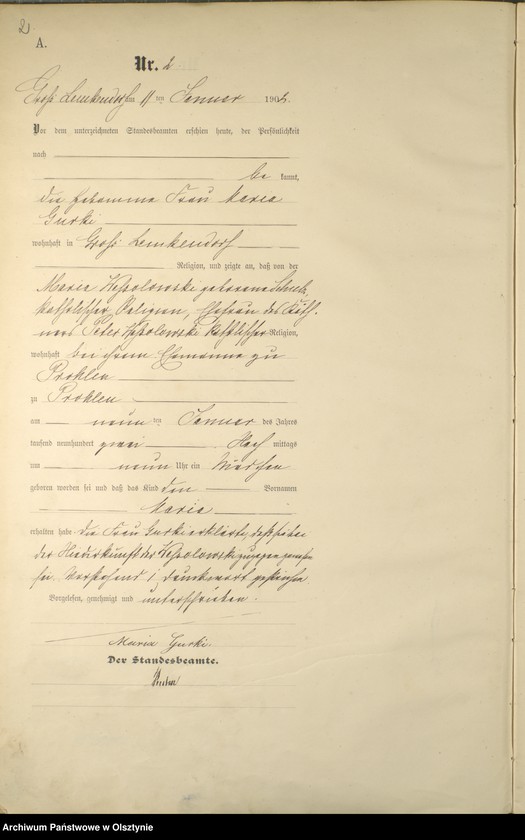 2
A.
Nr. 2
Groß Lemkendorf am 11 ten Januar 1902.
Vor dem unterzeichneten Standesbeamten erschien heute, der Persönlichkeit
nach
be kannt,
die Hebamme Frau Maria
Gurki
wohnhaft in Groß Lemkendorf
Religion, und zeigte an, daß von der
Maria geborene
katholischer Religion, Ehefrau des Käth-
ners Peter katholischer Religion,
wohnhaft bei ihrem Ehemanne zu
Prohlen
zu Prohlen
am neun ten Januar des Jahres
tausend neunhundert zwei Nach mittags
um neun Uhr ein Mädchen
geboren worden sei und daß das Kind den Vornamen
Maria
erhalten habe. Die Frau Gurki erklärte, daß sie bei
der Niederkunft der zugegen gewesen
sei. Vorstehend 1 Druckwort gestrichen.
Vorgelesen, genehmigt und unterschrieben.
Maria Gurki
Der Standesbeamte.
Archiwum Państwowe w Olsztynie